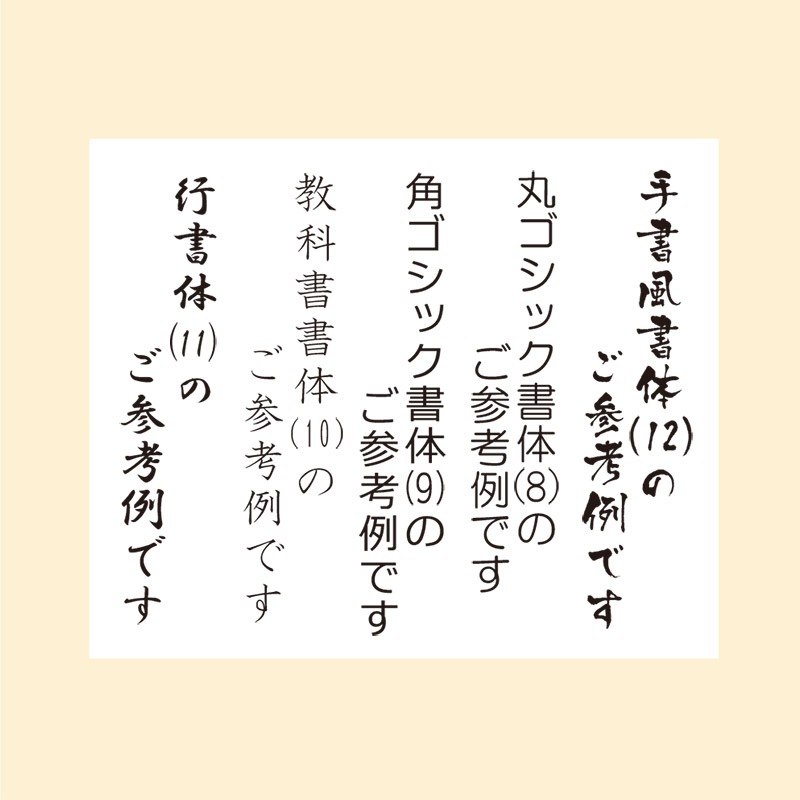 手書風書体(12)の
ご参考例です
丸ゴシック書体(8)の
ご参考例です
角ゴシック書体(9)の
ご参考例です
教科書書体(10)の
ご参考例です
行書体(11)の
ご参考例です